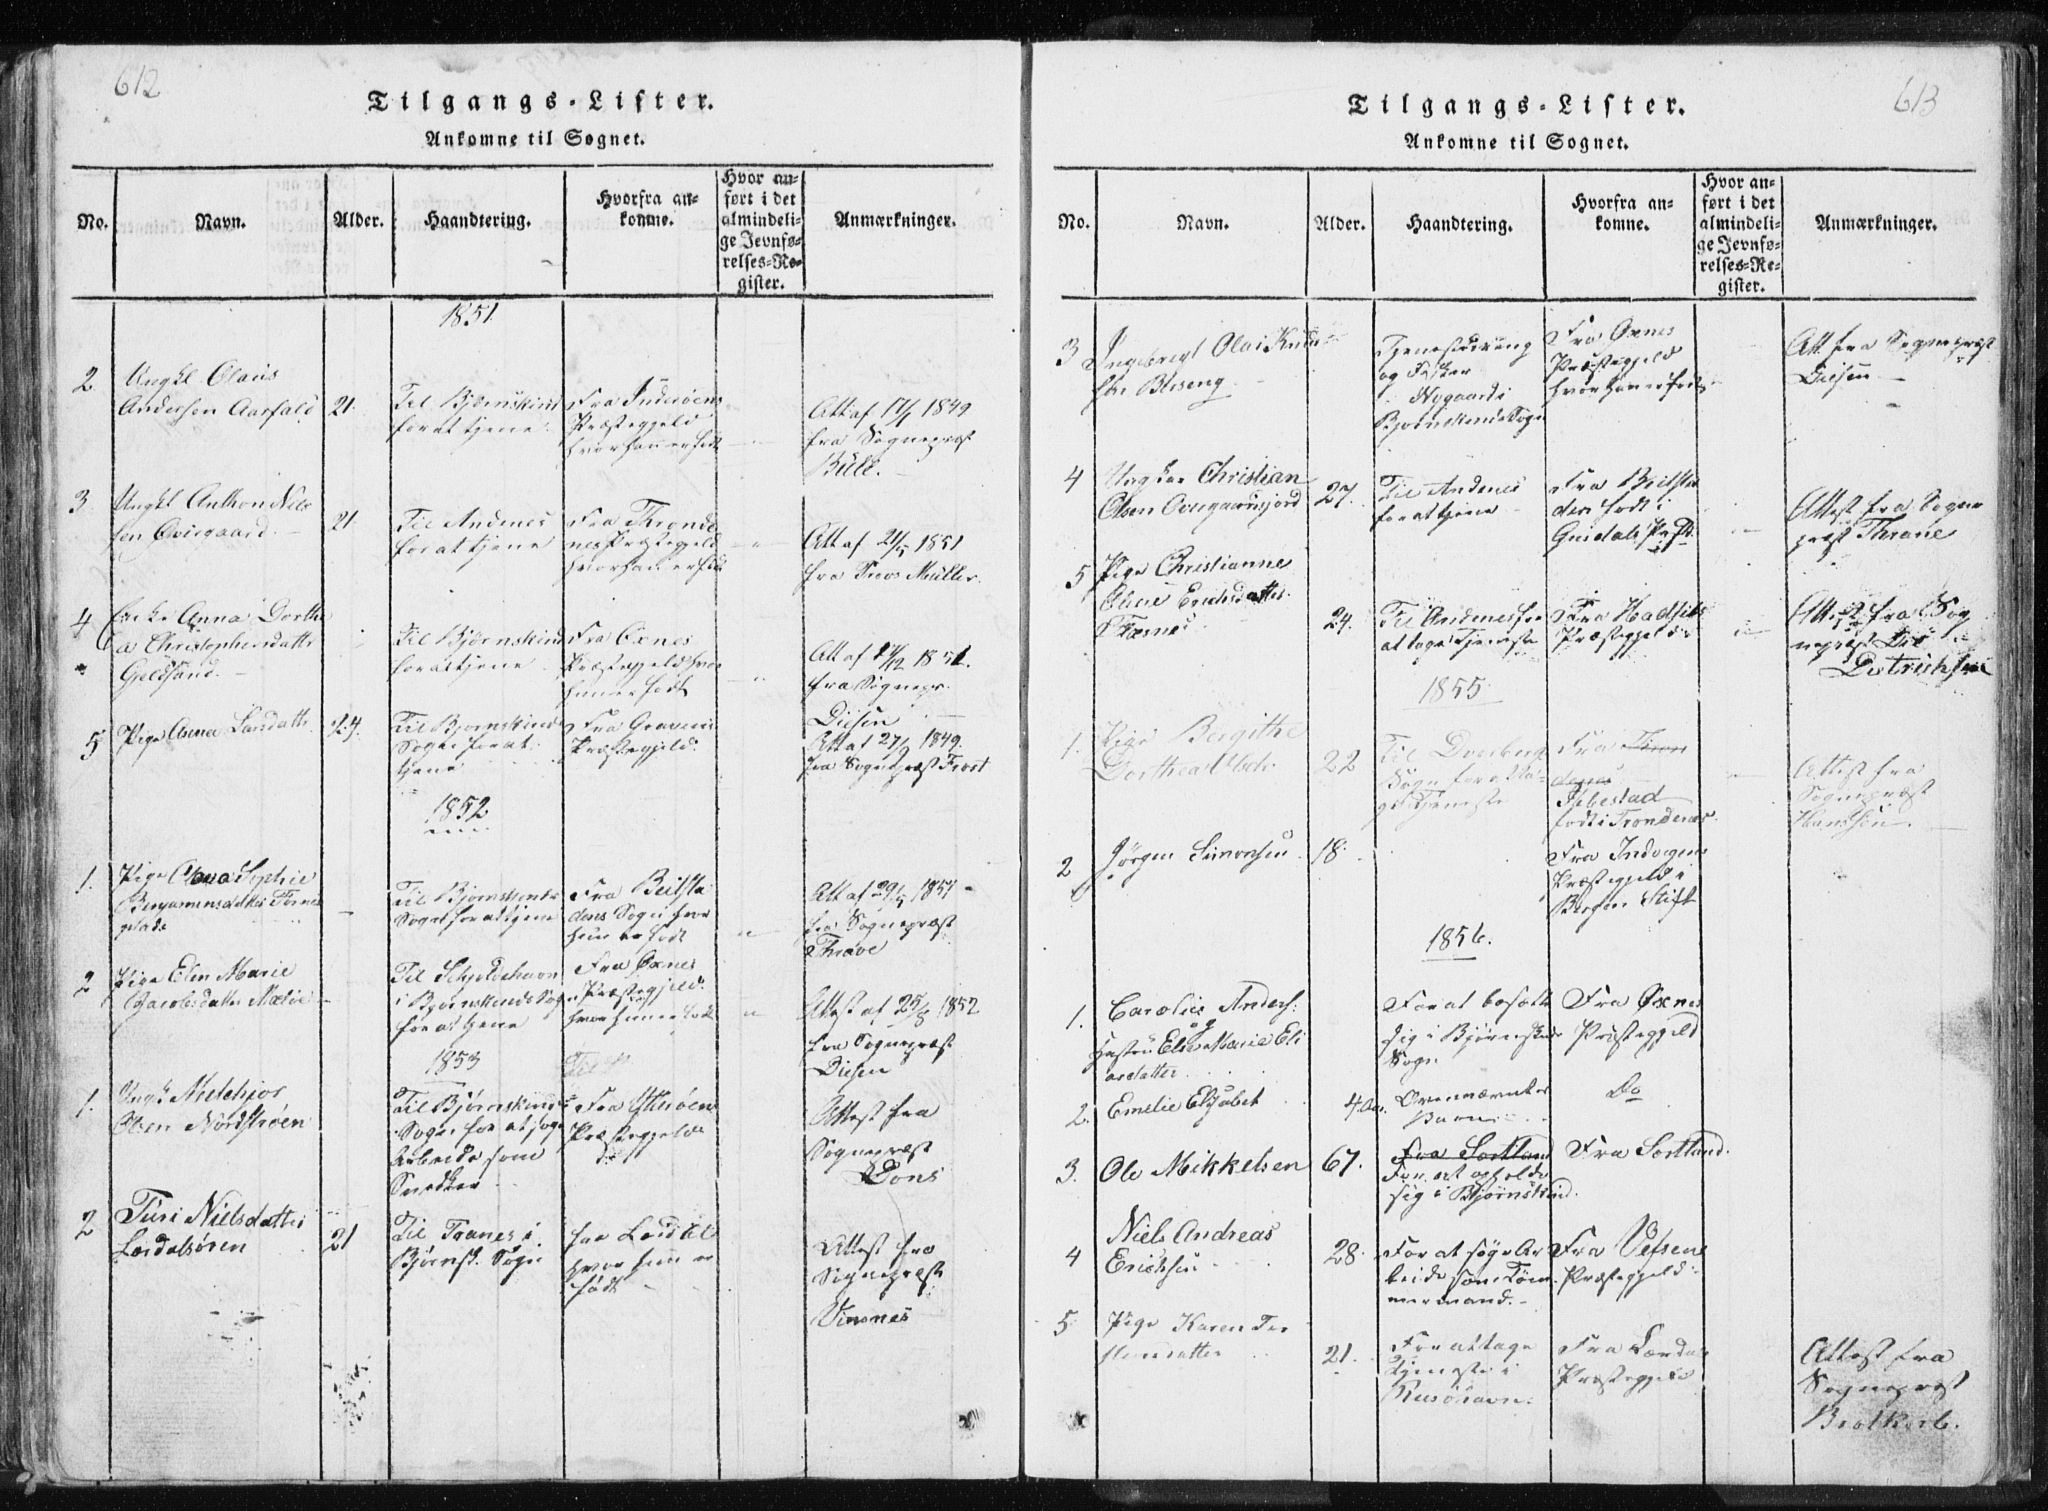 612
Tilgangs-Lister.
Ankomne til Sognet.
No.
Navn.
Alder.
Haandtering.
Hvorfra an-
komne.
Hvor an-
ført i det
almindeli-
ge Jevnfø-
relses-Re-
gister.
Anmærkninger.
1851.
2. Ungkl Olaus
Andersen Aarfald
21.
Til Bjørnskind
for at tjene.
Fra Inderøens
Præstegjeld
hvor han er født
Att af 17/5 1849
fra Sognepræst
Bull.
3. Ungkl Anthon Niel
sen Qvirgaard.
21
Til Andenes
for at tjene
Fra Thronde
nes Præstegjeld
hvor han er født
Att af 21/5 1851
fra Provst Müller.
4 Enke Anna Dorthe
a Christophersdatter
Guldsand.
Til Bjørnskind
for at tjene.
Fra Øxnes
Præstegjeld hvor
hun er født
Att af 14/12 1851.
fra Sognepr.
Diesen
5 Pige Anna Larsdatter
24.
Til Bjørnskinds
Sogn for at
tjene
Fra Gravens
Præstegjeld.
Att af 27/9 1849.
fra Sognepræst Frost
1852
1. Pige Anna Sophie
Benjaminsdatter
Til Bjørnskinds
Sogn for at tjene
Fra Beitsta
dens Sogn hvor
hun er født
Att af 29/5 1851
fra Sognepræst
Thrave
2 Pige Elen Marie
Jacobsdatter
Til Skjoldehavn
i Bjørnskinds Sogn
for at tjene
Fra Øxnes
Præstegjeld.
hvor hun er født
Attest af 25/8 1852
fra Sognepræst
Diesen
1853
1. Ungk Melchjor
Olsen Nordstrøen
Til Bjørnskinds
Sogn for at søge
Arbeide som
Snedker
Fra Ytterøens
Præstegjeld
Attest fra
Sognepræst
Dons
2 Turi Nielsdatter
Lærdalsøren
21
Til Tranes i
Bjørnsk. Sogn
fra Lærdal
hvor hun er
født
Attest fra
Sognepræst
Vinsnes
613
Tilgangs-Lister.
Ankomne til Sognet.
No.
Navn.
Alder.
Haandtering.
Hvorfra an-
komne.
Hvor an-
ført i det
almindeli-
ge Jevnfø-
relses-Re-
gister.
Anmærkninger.
3 Ingebregt Olai Knud
sen
Tjenestdreng
og Fisker
Nygaard i
Bjørnskinds Sogn
Fra Øxnes
Præstegjeld
hvor han er født
Att fra Sognepræst
Diesen
4 Ungkar Christian
Olsen
27.
Til Andenes
for at tjene
Fra Beitsta
den født i
Attest fra Sogne
præst Thrane
5 Pige Christianne
Oline Erichsdatter
24.
Til Andenes for
at tage Tjeneste
Fra Hadsels
Præstegjeld
Attest fra Sog
nepræst
Dietrichsen
1855
1. Pige Bergithe
Dorthea
22
Til Dverberg
Sogn for at ta-
ge Tjeneste
Fra Tron
denes
Ibbestad
født i Trondenæs
Attest fra
Sognepræst
Hanssen
2 Jørgen Simonsen
18
Fra Indvigens
Præstegjeld i
Bergen Stift
1856.
1. Carolius Anders:
og
Hustru Else Marie Eli
asdatter
For at bosætte
sig i Bjørnskinds
Sogn
Fra Øxnes
Præstegjeld
2. Emelie Elisabet
4 Aar.
Ovennævntes
Barn
Do
3. Ole Mikkelsen
67.
Fra Sortland
For at opholde
sig i Bjørnskind.
Fra Sortland.
4 Niels Andreas
Erichsen
28.
For at søge Ar
beide som Tøm
mermand.
Fra Vefsens
Præstegjeld
5 Pige Karen Tor
stensdatter
21.
For at tage
Tjeneste i
Risøhavn.
Fra Lærdals
Præstegjeld
Attest fra
Sognepræst
Brotkorb.